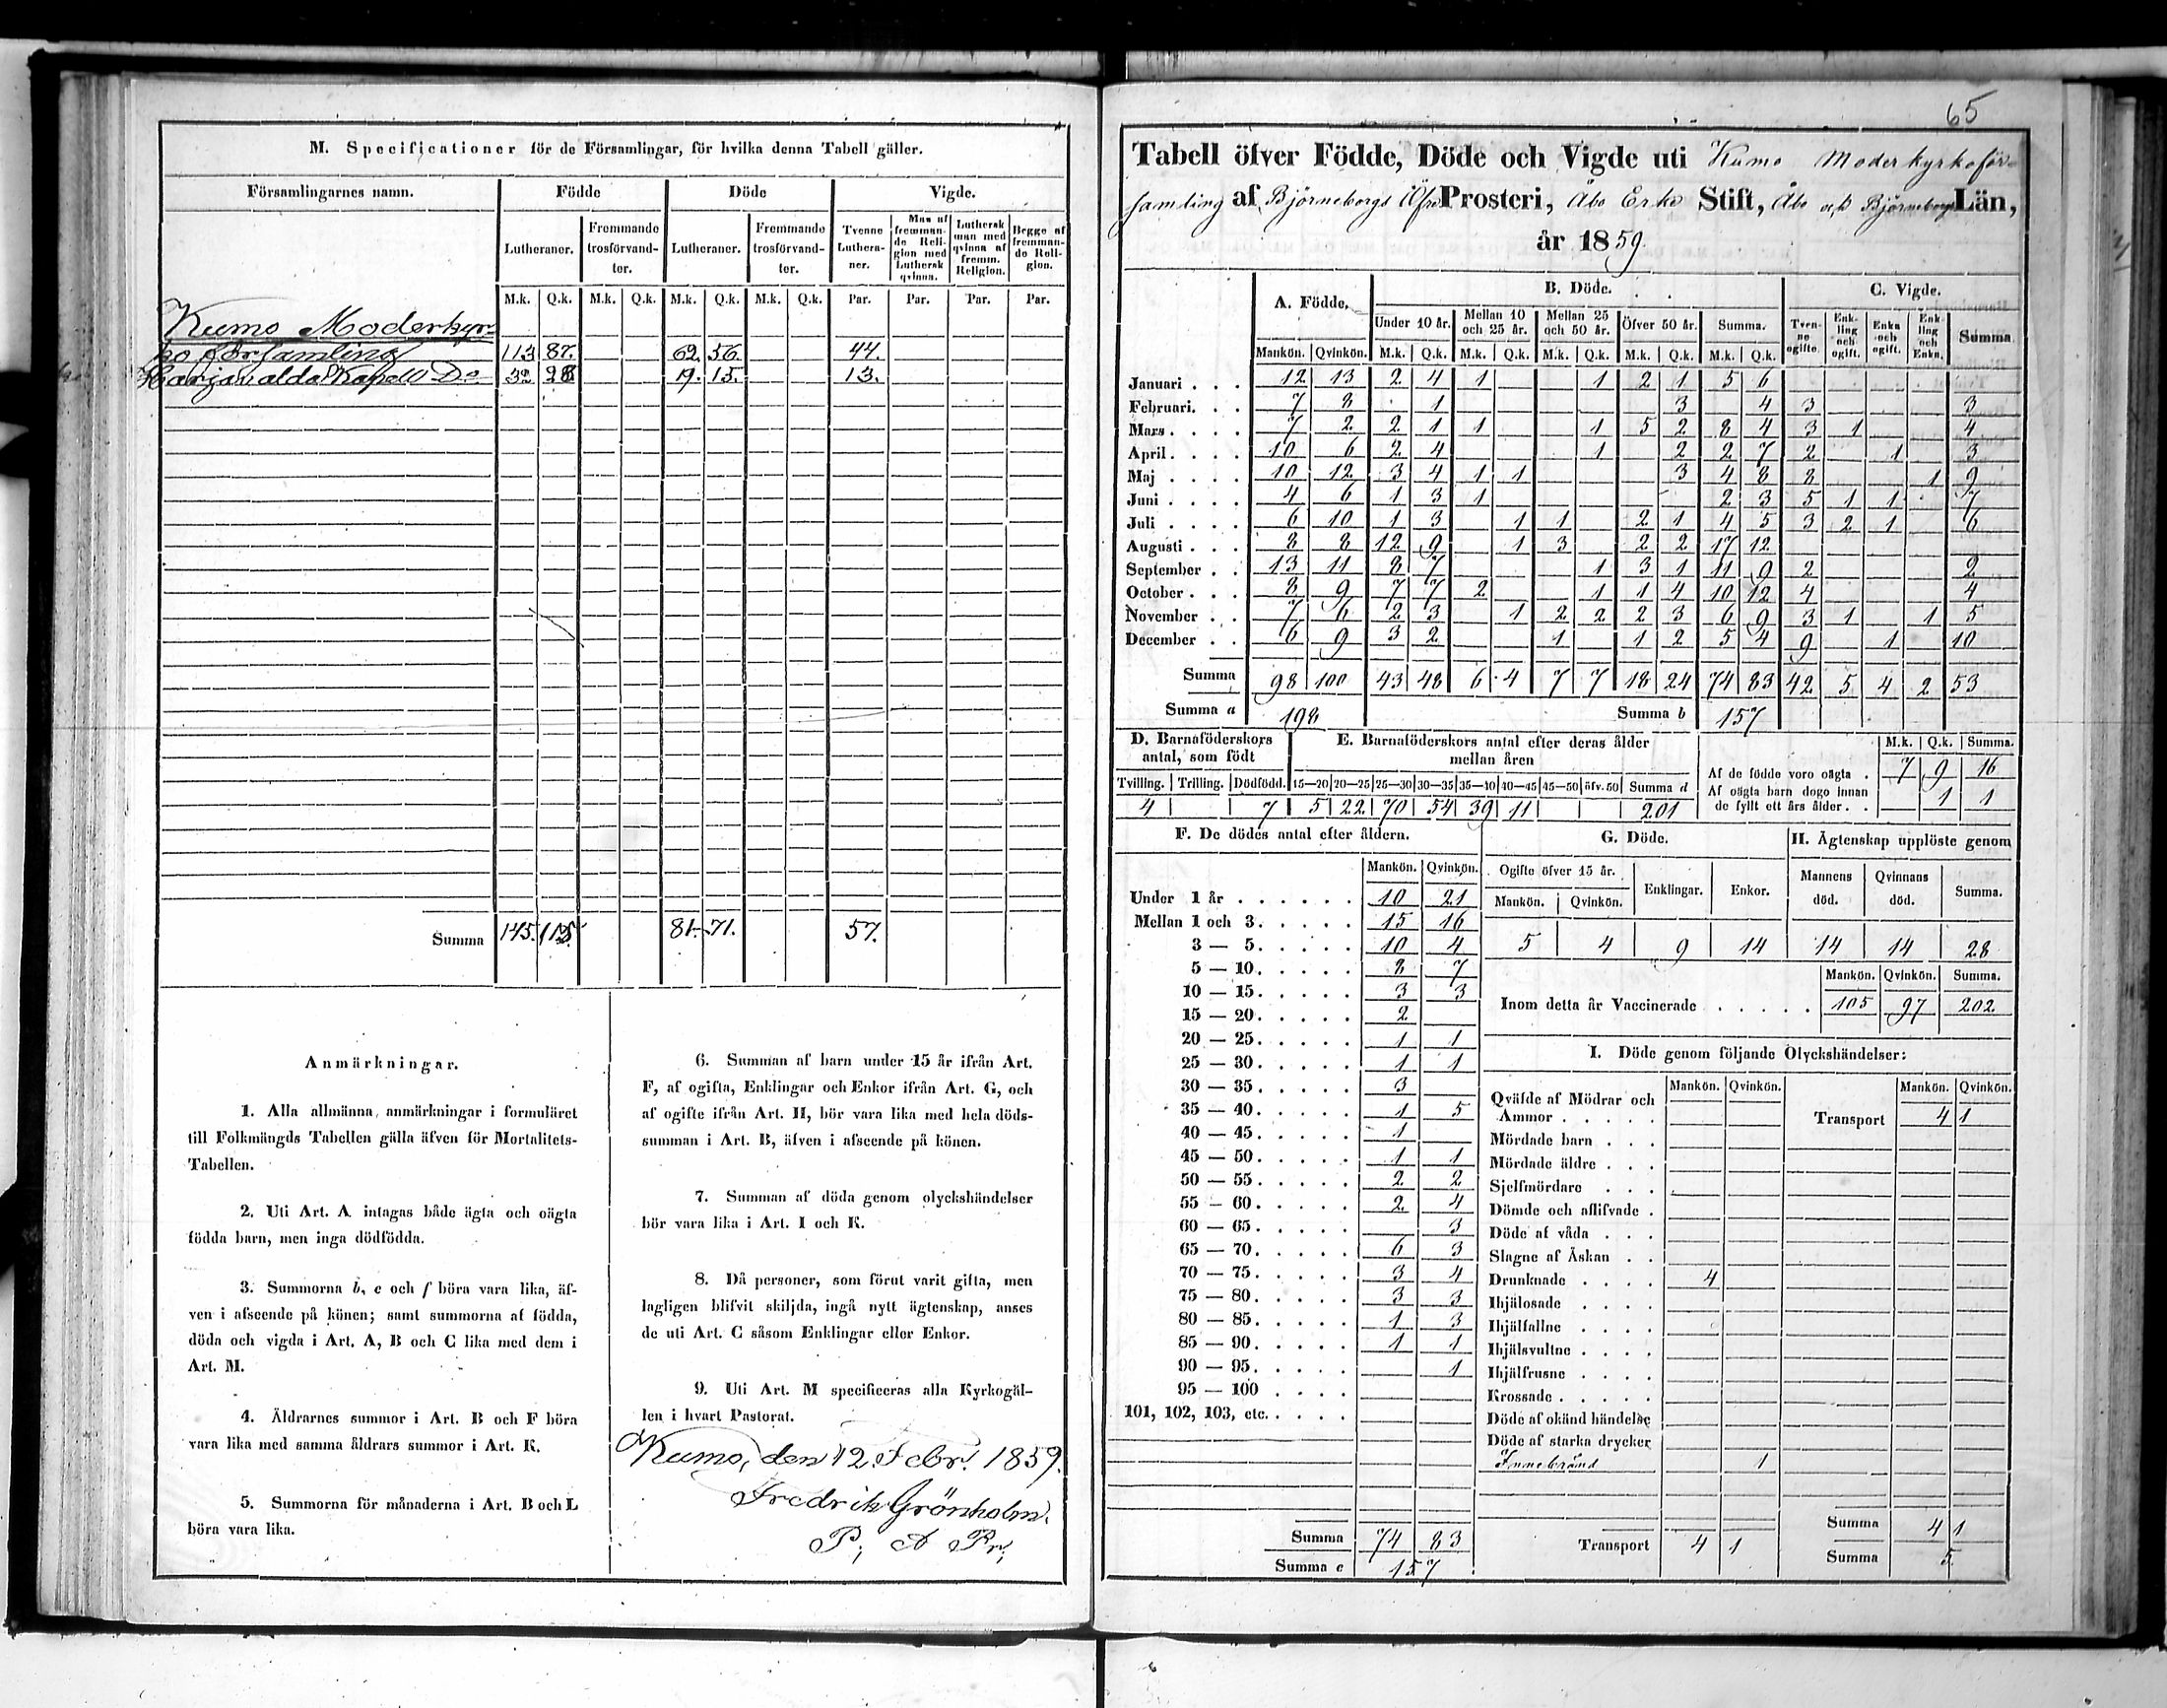 M. Specificationer för de Församlingar, för hvilka denna Tabell gäller.
Församlingarnes namn. Födde Döde Vigde.
Lutheraner. Fremmande trosförvandter. Lutheraner. Fremmande trosförvandter. Tvenne Lutheraner. Man af fremmande Religion med Luthersk qvinna. Luthersk man med qvinna af fremm. Religion. Begge af fremmande Religion.
M.k. Q.k. M.k. Q.k. M.k. Q.k. M.k. Q.k. Par. Par. Par. Par.
Kumo Moderkyr-
ko församling 113 87. 62. 56. 44.
Harjavalda Kapell Do 32 28 19. 15. 13.
Summa 145. 115. 81. 71. 57.
Anmärkningar.
1. Alla allmänna anmärkningar i formuläret
till Folkmängds Tabellen gälla äfven för Mortalitets-
Tabellen.
2. Uti Art. A intagas både ägta och oägta
födda barn, men inga dödfödda.
3. Summorna b, c och f böra vara lika, äf-
ven i afseende på könen; samt summorna af födda,
döda och vigda i Art. A, B och C lika med dem i
Art. M.
4. Åldrarnes summor i Art. B och F böra
vara lika med samma åldrars summor i Art. K.
5. Summorna för månaderna i Art. B och L
böra vara lika.
6. Summan af barn under 15 år ifrån Art.
F, af ogifta, Enklingar och Enkor ifrån Art. G, och
af ogifte ifrån Art. H, bör vara lika med hela döds-
summan i Art. B, äfven i afseende på könen.
7. Summan af döda genom olyckshändelser
bör vara lika i Art. I och K.
8. Då personer, som förut varit gifta, men
lagligen blifvit skiljda, ingå nytt ägtenskap, anses
de uti Art. C såsom Enklingar eller Enkor.
9. Uti Art. M specificeras alla Kyrkogäl-
len i hvart Pastorat.
Kumo, den 12. Febr. 1859.
Fredrik Grönholm.
P; A Pr;
65
Tabell öfver Födde, Döde och Vigde uti Kumo Moderkyrkoför-
samling af Björneborgs Öfre Prosteri, Åbo Erke Stift, Åbo och Björneborgs Län,
år 1859.
A. Födde. B. Döde. C. Vigde.
Under 10 år. Mellan 10 och 25 år. Mellan 25 och 50 år. Öfver 50 år. Summa. Tvenne ogifte. Enkling och ogift. Enka och ogift. Enkling och Enka. Summa
Mankön. Qvinkön. M.k. Q.k. M.k. Q.k. M.k. Q.k. M.k. Q.k. M.k. Q.k.
Januari . . . 12 13 2 4 1 1 2 1 5 6
Februari. . . 7 8 1 3 4 3 3
Mars . . . . 7 2 2 1 1 1 5 2 8 4 3 1 4
April. . . . 10 6 2 4 1 2 2 7 2 1 3
Maj . . . . 10 12 3 4 1 1 3 4 8 8 1 9
Juni . . . . 4 6 1 3 1 2 3 5 1 1 7
Juli . . . . 6 10 1 3 1 1 2 1 4 5 3 2 1 6
Augusti . . . 8 8 12 9 1 3 2 2 17 12
September . . 13 11 8 7 1 3 1 11 9 2 2
October . . . 8 9 7 7 2 1 1 4 10 12 4 4
November . . 7 6 2 3 1 2 2 2 3 6 9 3 1 1 5
December . . 6 9 3 2 1 1 2 5 4 9 1 10
Summa 98 100 43 48 6 4 7 7 18 24 74 83 42 5 4 2 53
Summa a 198 Summa b 157
D. Barnaföderskors antal, som födt
Tvilling. Trilling. Dödfödd.
4 7
E. Barnaföderskors antal efter deras ålder mellan åren
15—20 20—25 25—30 30—35 35—40 40—45 45—50 öfv. 50 Summa d
5 22 70 54 39 11 201
M.k. Q.k. Summa.
Af de födde voro oägta . 7 9 16
Af oägta barn dogo innan
de fyllt ett års ålder . . 1 1
F. De dödes antal efter åldern.
Mankön. Qvinkön.
Under 1 år . . . . . . 10 21
Mellan 1 och 3. . . . . 15 16
3 — 5. . . . . 10 4
5 — 10. . . . . 8 7
10 — 15. . . . . 3 3
15 — 20. . . . . 2
20 — 25. . . . . 1 1
25 — 30. . . . . 1 1
30 — 35. . . . . 3
35 — 40. . . . . 1 5
40 — 45. . . . . 1
45 — 50. . . . . 1 1
50 — 55. . . . . 2 2
55 — 60. . . . . 2 4
60 — 65. . . . . 3
65 — 70. . . . . 6 3
70 — 75. . . . . 3 4
75 — 80. . . . . 3 3
80 — 85. . . . . 1 3
85 — 90. . . . . 1 1
90 — 95. . . . . 1
95 — 100 . . . .
101, 102, 103, etc. . . . .
Summa 74 83
Summa c 157
G. Döde.
Ogifte öfver 15 år. Enklingar. Enkor.
Mankön. Qvinkön.
5 4 9 14
H. Ägtenskap upplöste genom
Mannens död. Qvinnans död. Summa.
14 14 28
Mankön. Qvinkön. Summa.
Inom detta år Vaccinerade . . . . . 105 97 202.
I. Döde genom följande Olyckshändelser:
Mankön. Qvinkön. Mankön. Qvinkön.
Qväfde af Mödrar och
Ammor . . . . . Transport 4 1
Mördade barn . . .
Mördade äldre . . .
Sjelfmördare . . .
Dömde och aflifvade .
Döde af våda . . .
Slagne af Åskan . .
Drunknade . . . . 4
Ihjälosade . . . .
Ihjälfallne . . . .
Ihjälsvultne . . . .
Ihjälfrusne . . . .
Krossade . . . . .
Döde af okänd händelse
Döde af starka drycker
Innebränd 1
Transport 4 1
Summa 4 1
Summa 5.